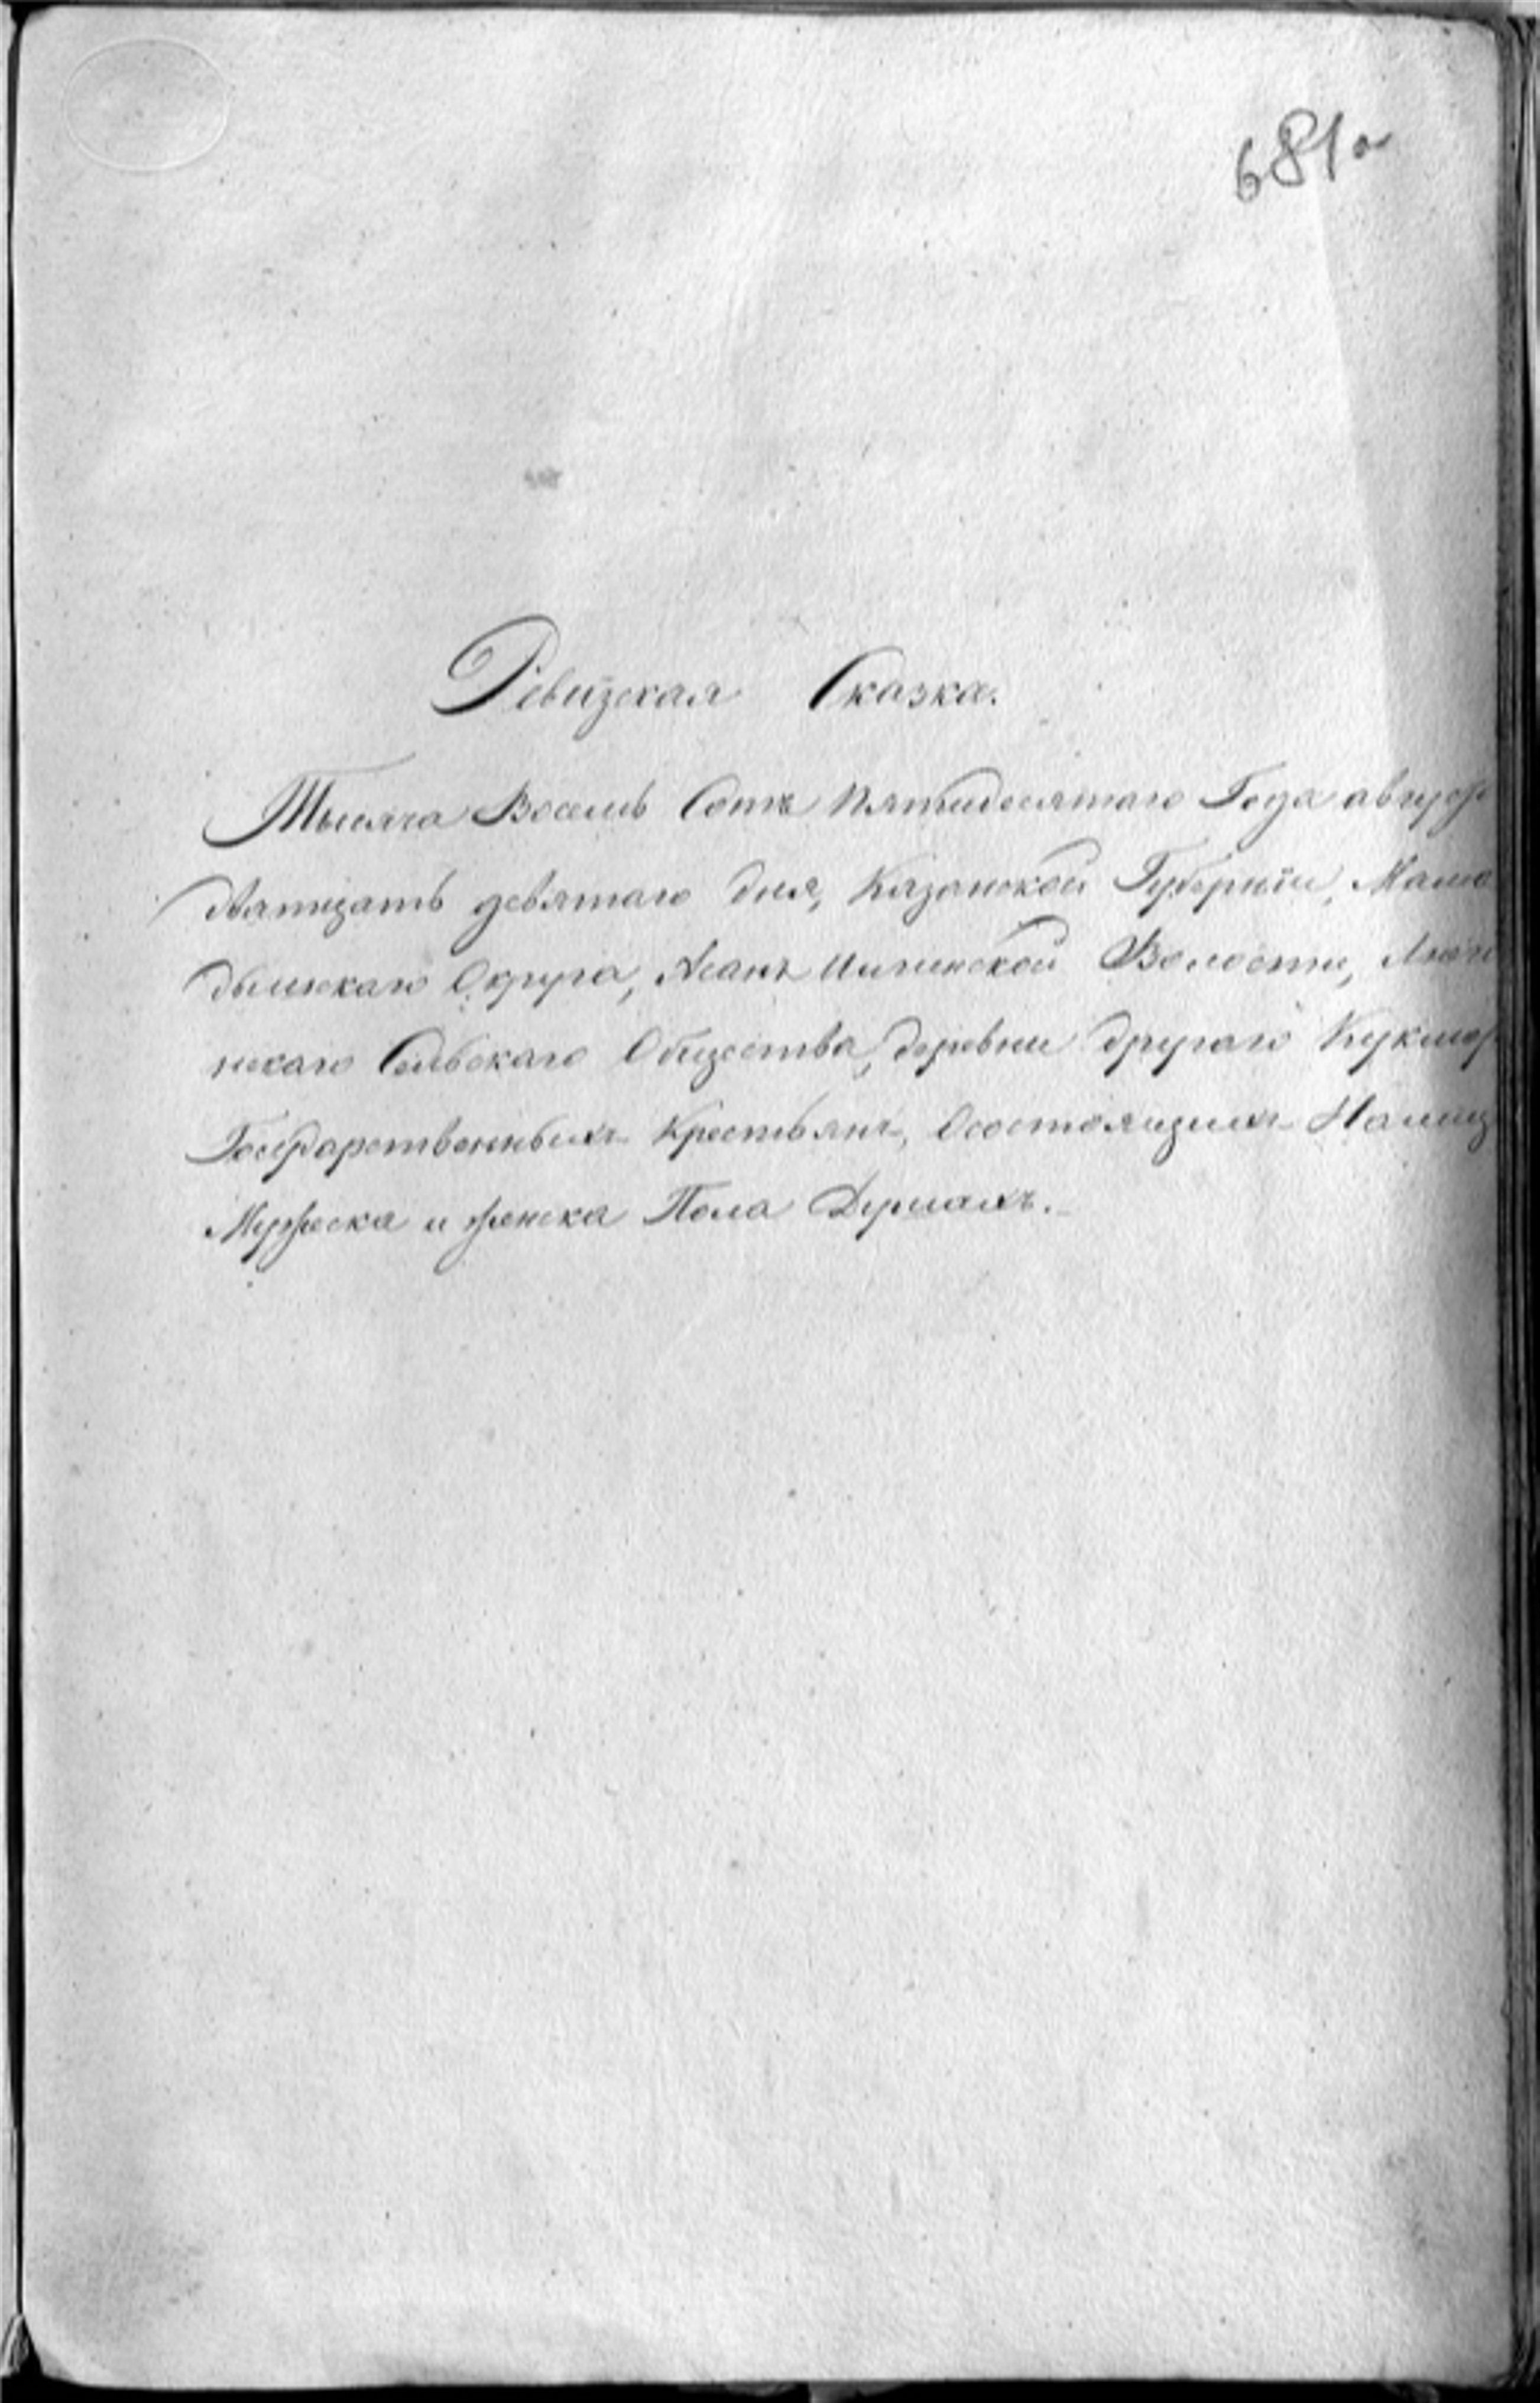 681а
Ревизская Сказка.
Тысяча Восемь Сотъ Пятидесятаго Года авгус
дватцать девятаго дня, Казанской Губерніи, Мама
дышскаго Округа, Асанъ Илгинской Волости,
нскаго Сельскаго Общества, деревни другаго Кукмор
Государственныхъ Крестьянъ, О состоящихъ На лиц
Мужеска и женска Пола Душахъ.